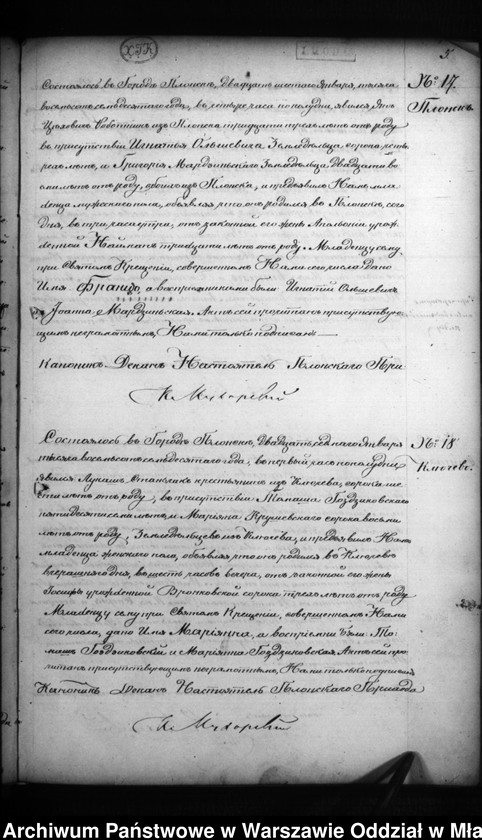 5
№ 17.
Плонскъ
Состоялось въ Городѣ Плонскѣ, Двадцать шестаго Января, тысяча
восемьсотъ семьдесятаго года, въ четыре часа по полудни, явился Янъ
Работникъ изъ Плонска тридцати трехъ лѣтъ отъ роду
въ присутствіи Игнатія Ольшевика Земледѣльца сорока
лѣтъ, и Григорія Мардзиньскаго Земледѣльца Двадцати во
сьми лѣтъ отъ роду, обоихъ изъ Плонска, и предъявилъ Намъ мла
денца мужескаго пола, объявляя что онъ родился въ Плонскѣ, сего
дня, въ три часа утра, отъ законной его жены Апалоніи, урож
денной тридцати лѣтъ отъ роду. Младенцу сему
при Святомъ Крещеніи, совершенномъ Нами сего числа дано
Имя Францъ, а воспріемниками были Игнатій Ольшевикъ
и Іоанна Мардзиньская. Актъ сей прочитанъ присутствую
щимъ неграмотнымъ, Нами только подписанъ
Каноникъ Деканъ Настоятель Плонскаго При
№ 18
Ключево.
Состоялось въ Городѣ Плонскѣ, Двадцать седьмаго Января
тысяча восемьсотъ семьдесятаго года, въ первый часъ по полудни
явился Лукашъ крестьянинъ изъ Ключева, сорока ше
сти лѣтъ отъ роду, въ присутствіи Томаша Гоздзиковскаго
пятидесяти семи лѣтъ и Маріяна сорока восьми
лѣтъ отъ роду, Земледѣльцевъ изъ Ключева, и предъявилъ Намъ
младенца женскаго пола, объявляя что онъ родился въ Ключевѣ
вчерашняго дня, въ шесть часовъ вечера, отъ законной его жены
Іозефы урожденной Вронковской сорока трехъ лѣтъ отъ роду
Младенцу сему при Святомъ Крещеніи, совершенномъ Нами
сего числа, дано Имя Маріянна, а воспріемниками были То
машъ Гоздзиковскій и Маріянна Гоздзиковская. Актъ сей про
читанъ присутствующимъ неграмотнымъ, Нами только подписанъ
Каноникъ Деканъ Настоятель Плонскаго Прихода
Archiwum Państwowe w Warszawie Oddział w Mła